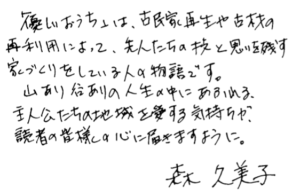 優しいおうちは、古民家再生や古材の
再利用によって、先人たちの技と思いを残す
家づくりをしている人の物語です。
山あり谷ありの人生の中にあふれる、
主人公たちの地域を愛する気持ちが、
読者の皆様の心に届きますように。
森 久美子